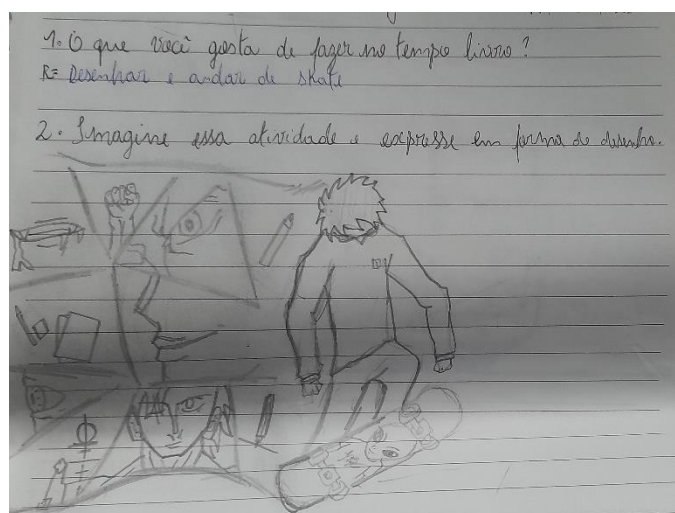 1. O que você gosta de fazer no tempo livro?
R= Desenhar e andar de skate
2. Imagine essa atividade e expresse em forma de desenho.